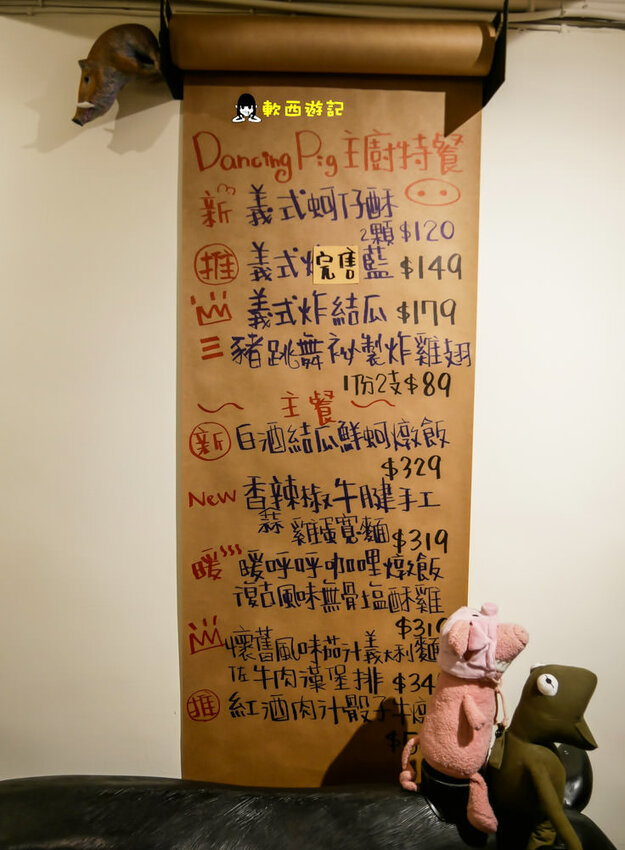 軟西遊記
Dancing Pig 主廚特餐
新 義式蚵仔酥
2顆 $120
推 義式炸 完售 藍 $149
義式炸結瓜 $179
三豬跳舞祕製炸雞翅
1份2支 $89
主餐
新 白酒結瓜鮮蚵燉飯
$329
NeW 香辣椒牛腱手工
蒜 雞蛋寬麵 $319
暖 暖呼呼咖哩燉飯
復古風味無骨塩酥雞
$319
懷舊風味茄汁義大利麵
佐牛肉漢堡排 $34
推 紅酒肉汁骰子牛
$